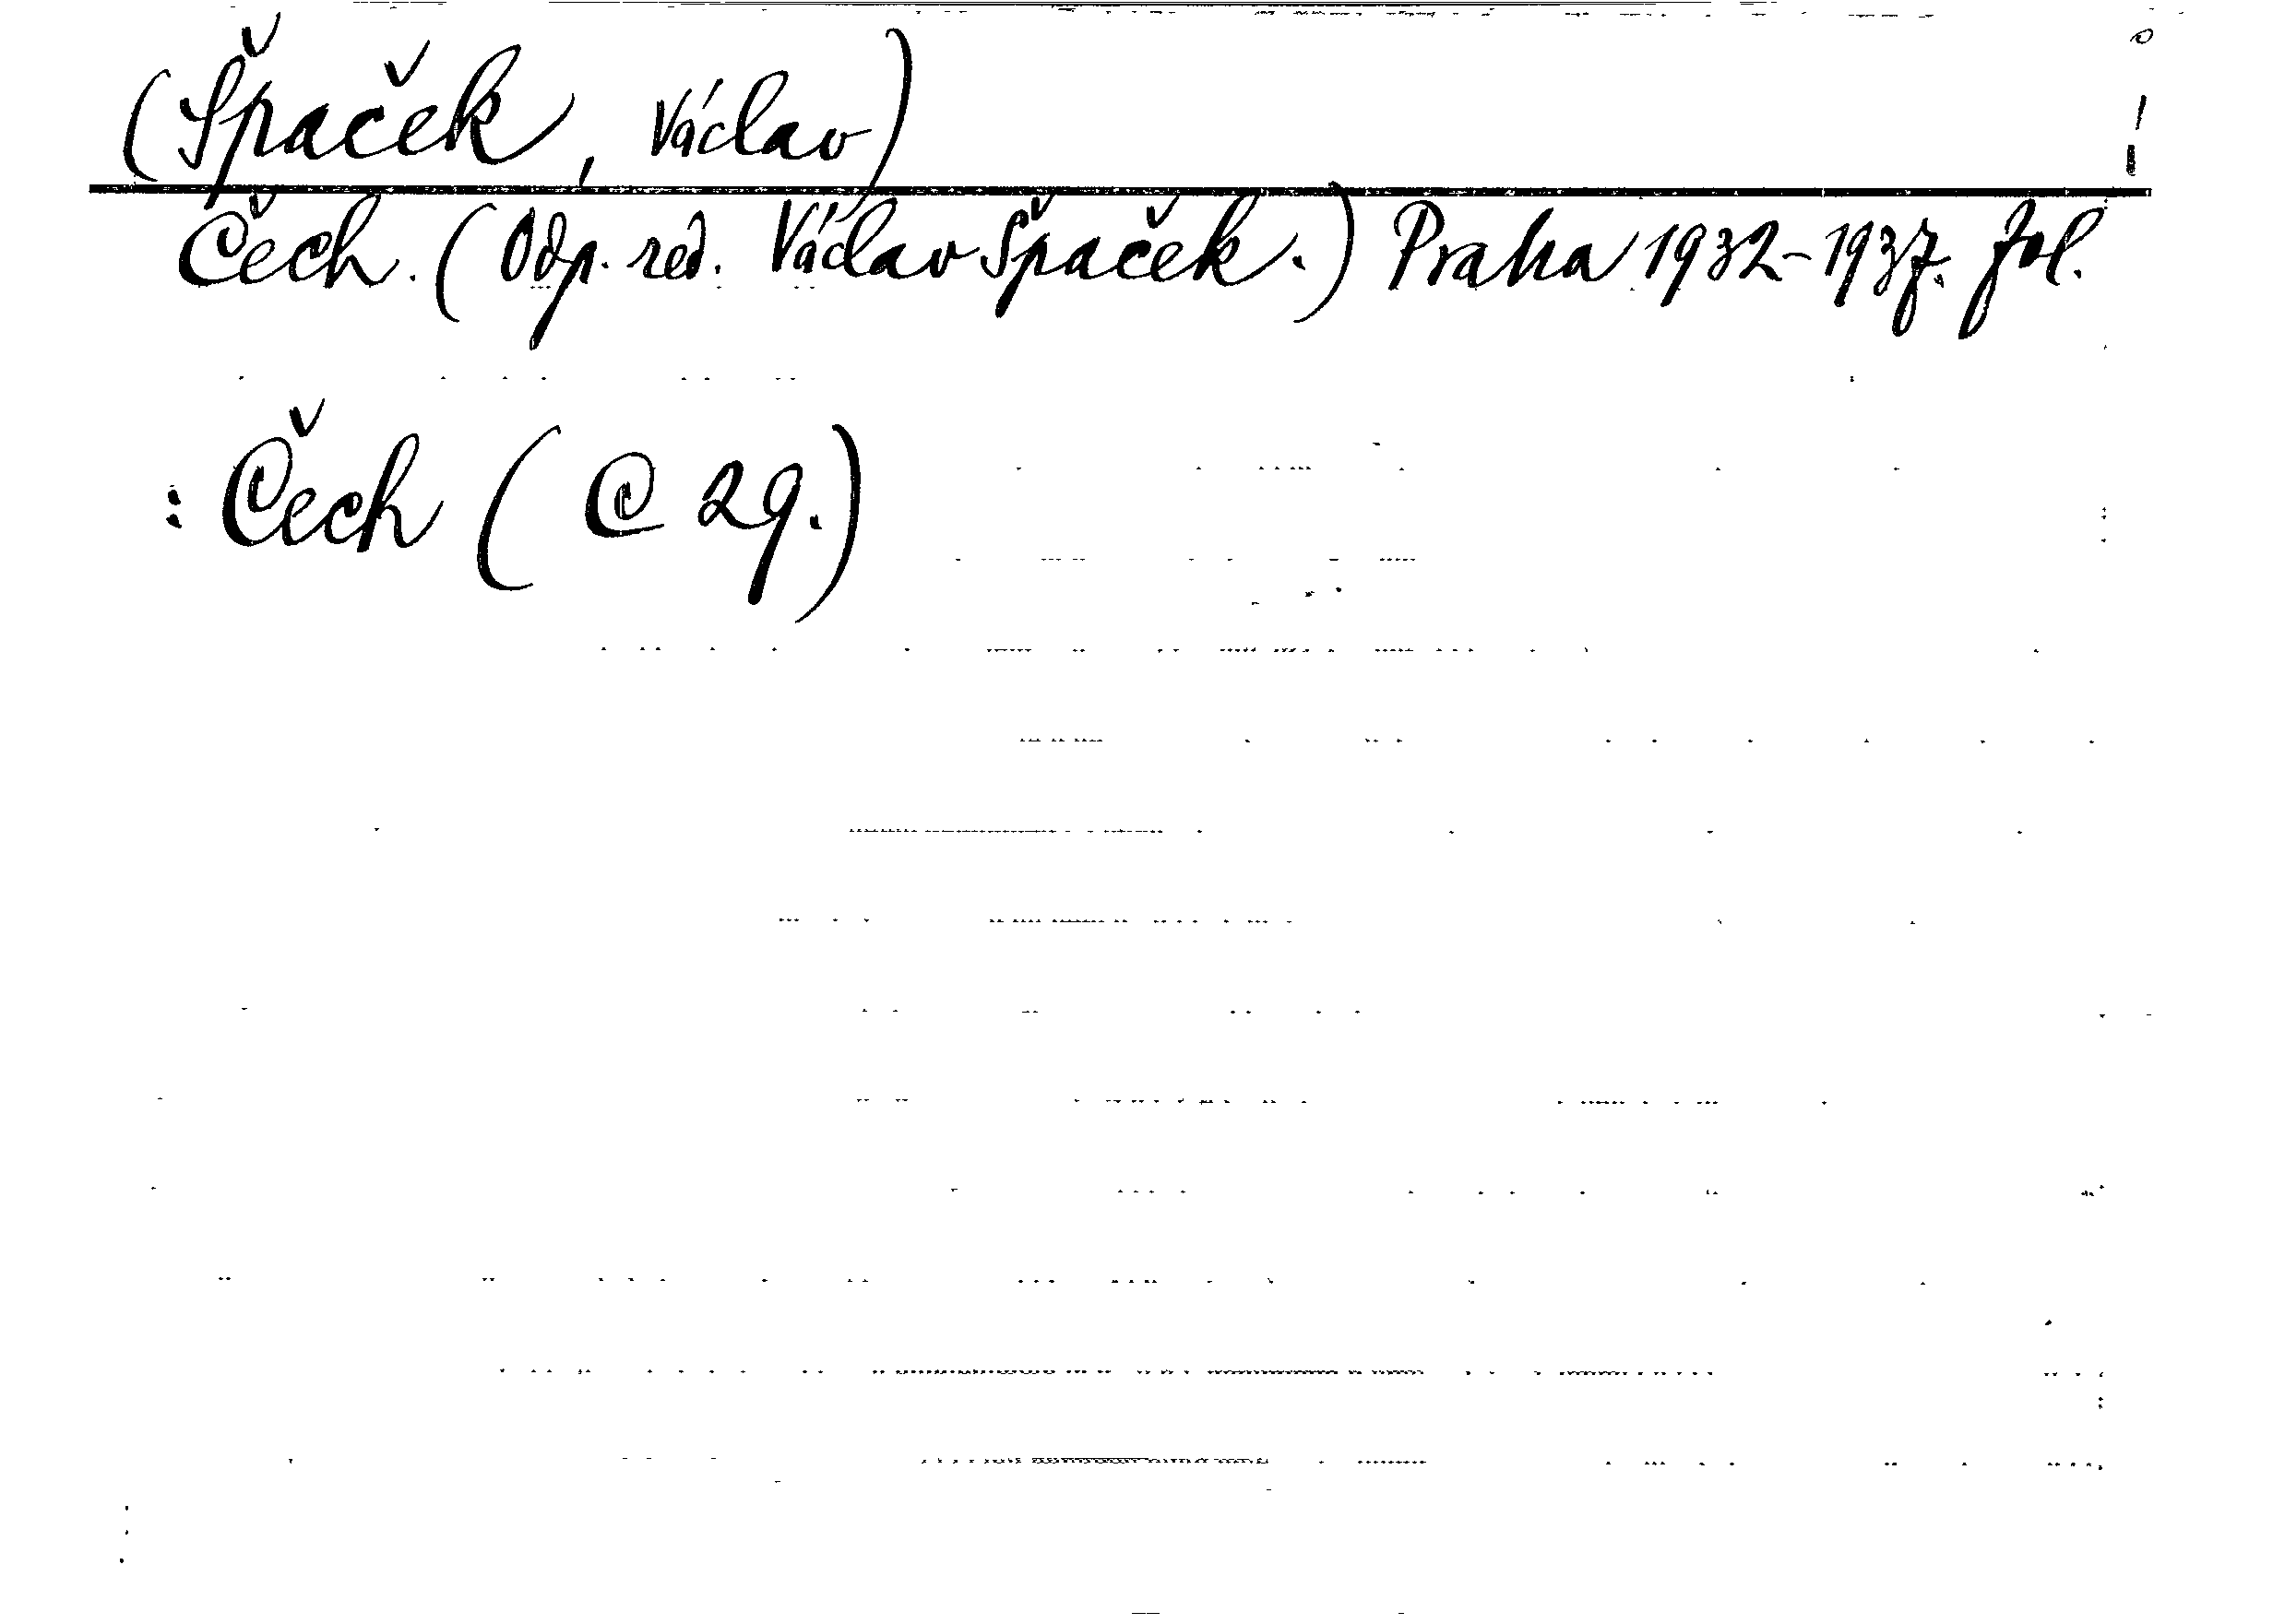 (Špaček, Václav)
Čech. (Odp. red. Václav Špaček.) Praha 1932-1937. fol.
: Čech (C 29.)